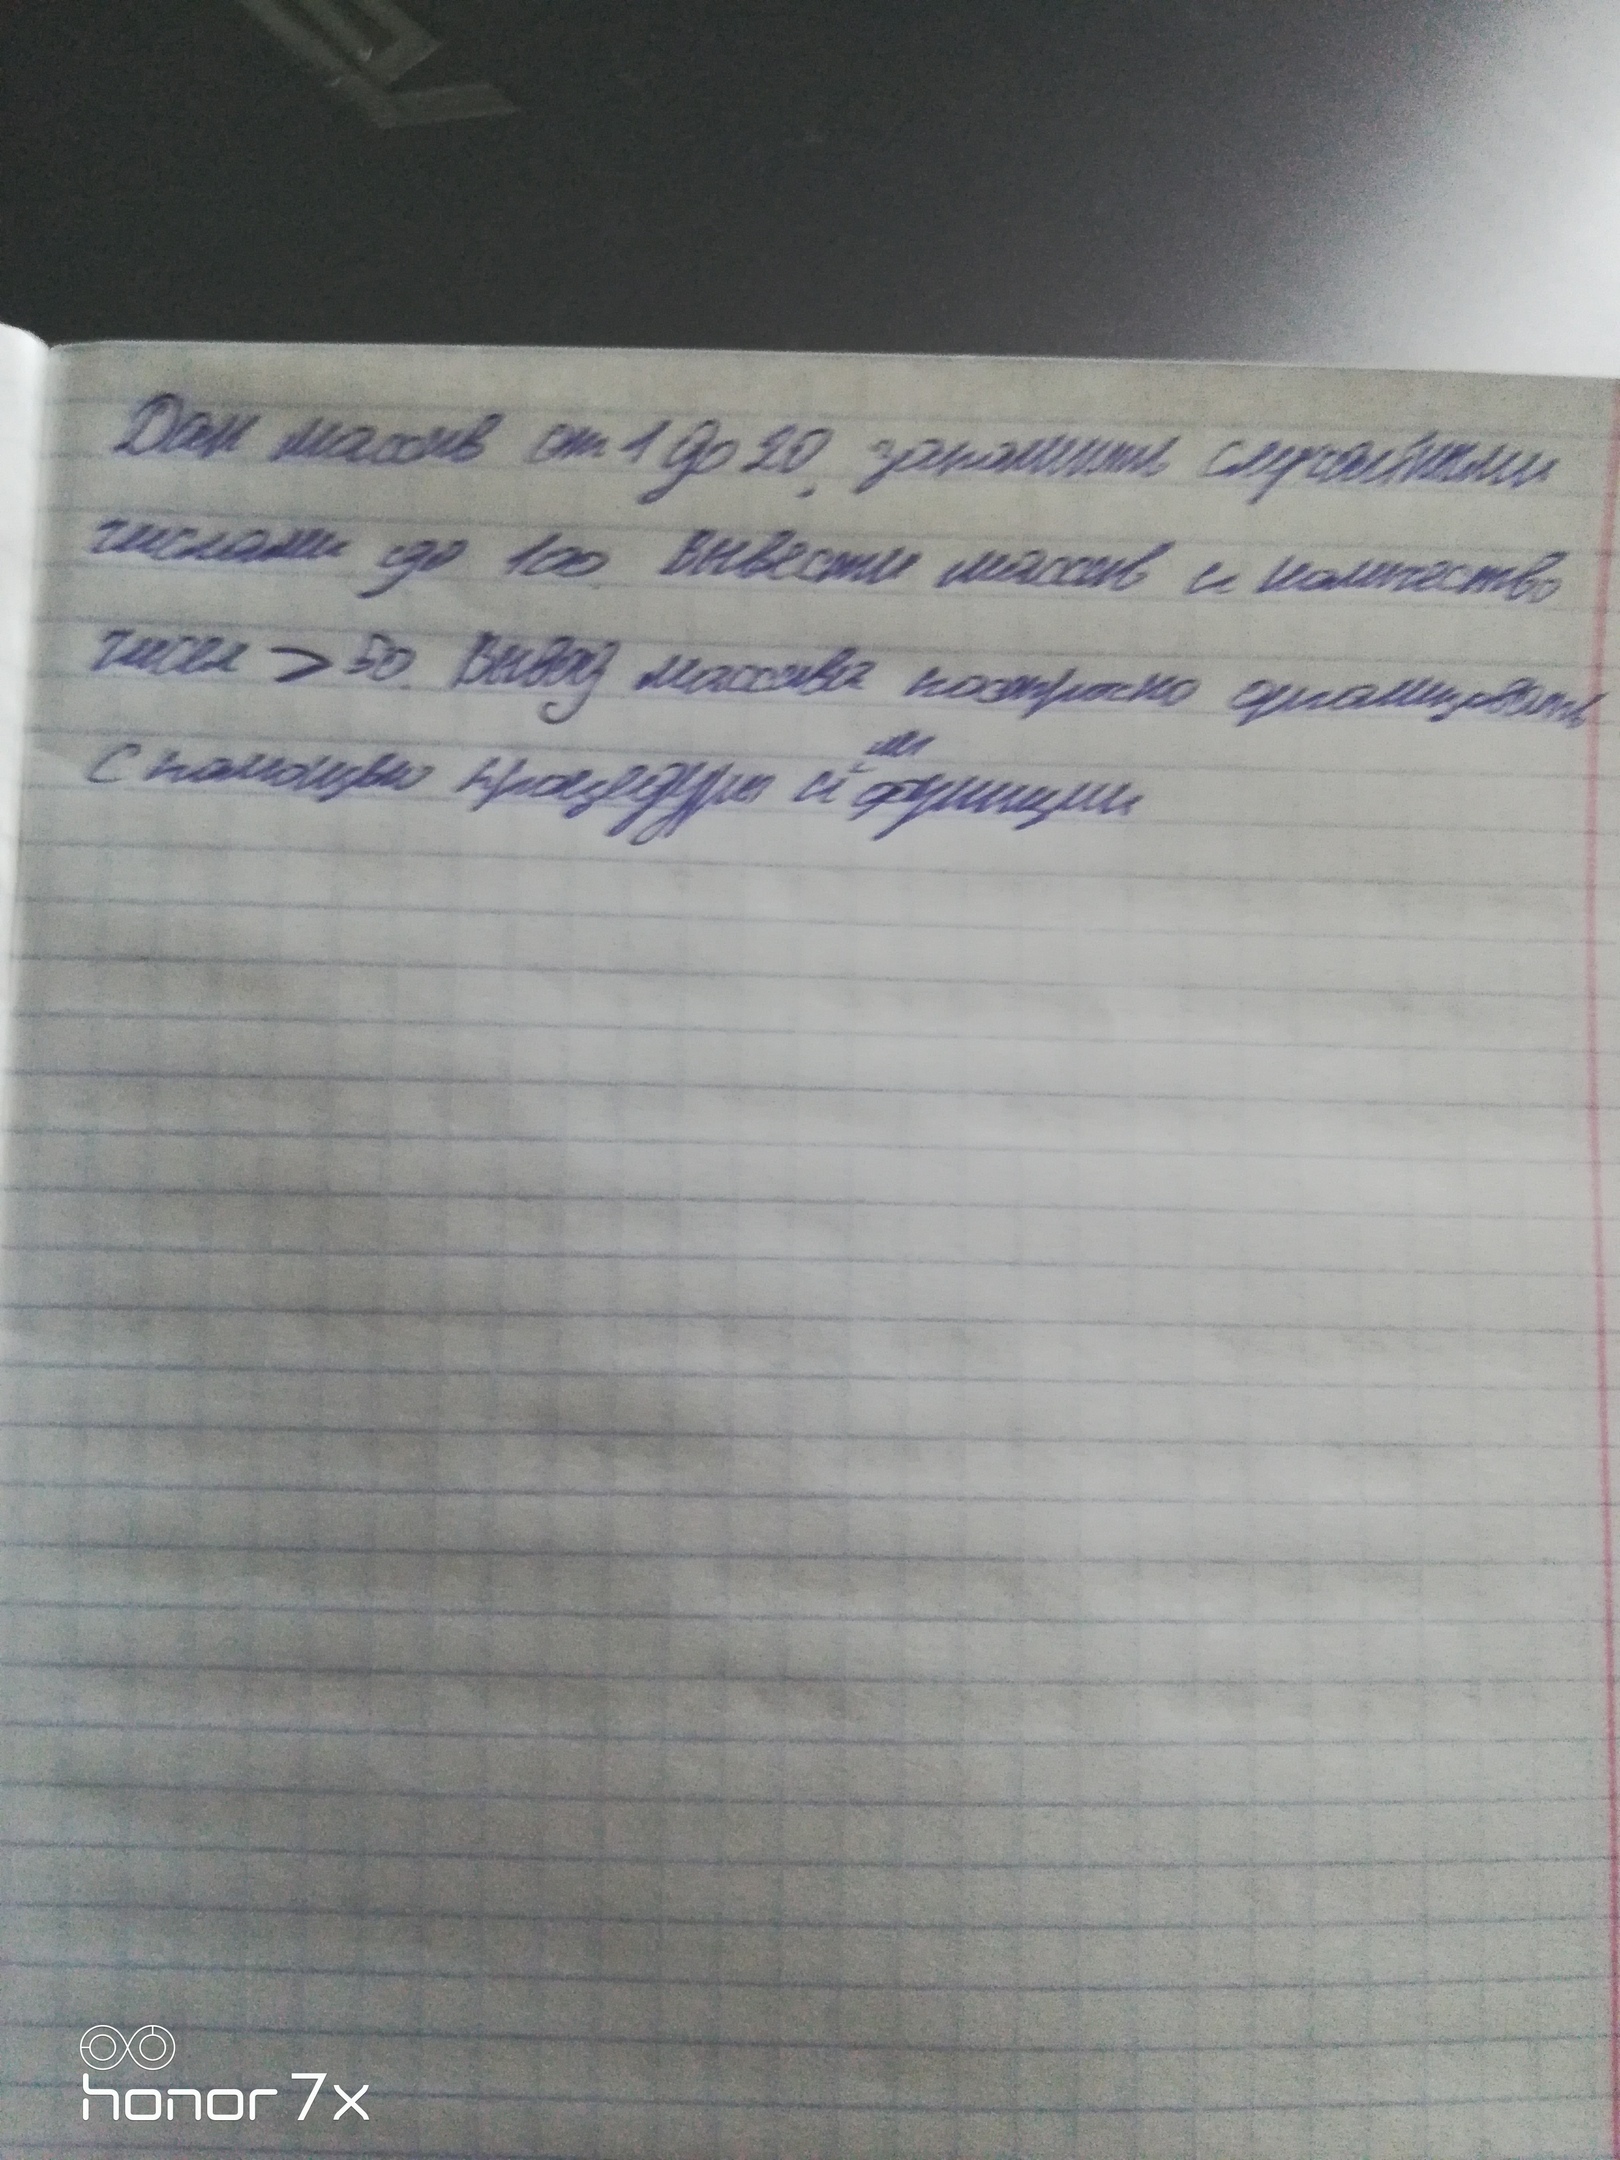 Дан массив от 1 до 20, заполнить случайными
числами до 100. Вывести массив и количество
чисел > 50. Вывод массива построчно организовать
с помощью процедуры или функции
honor 7x